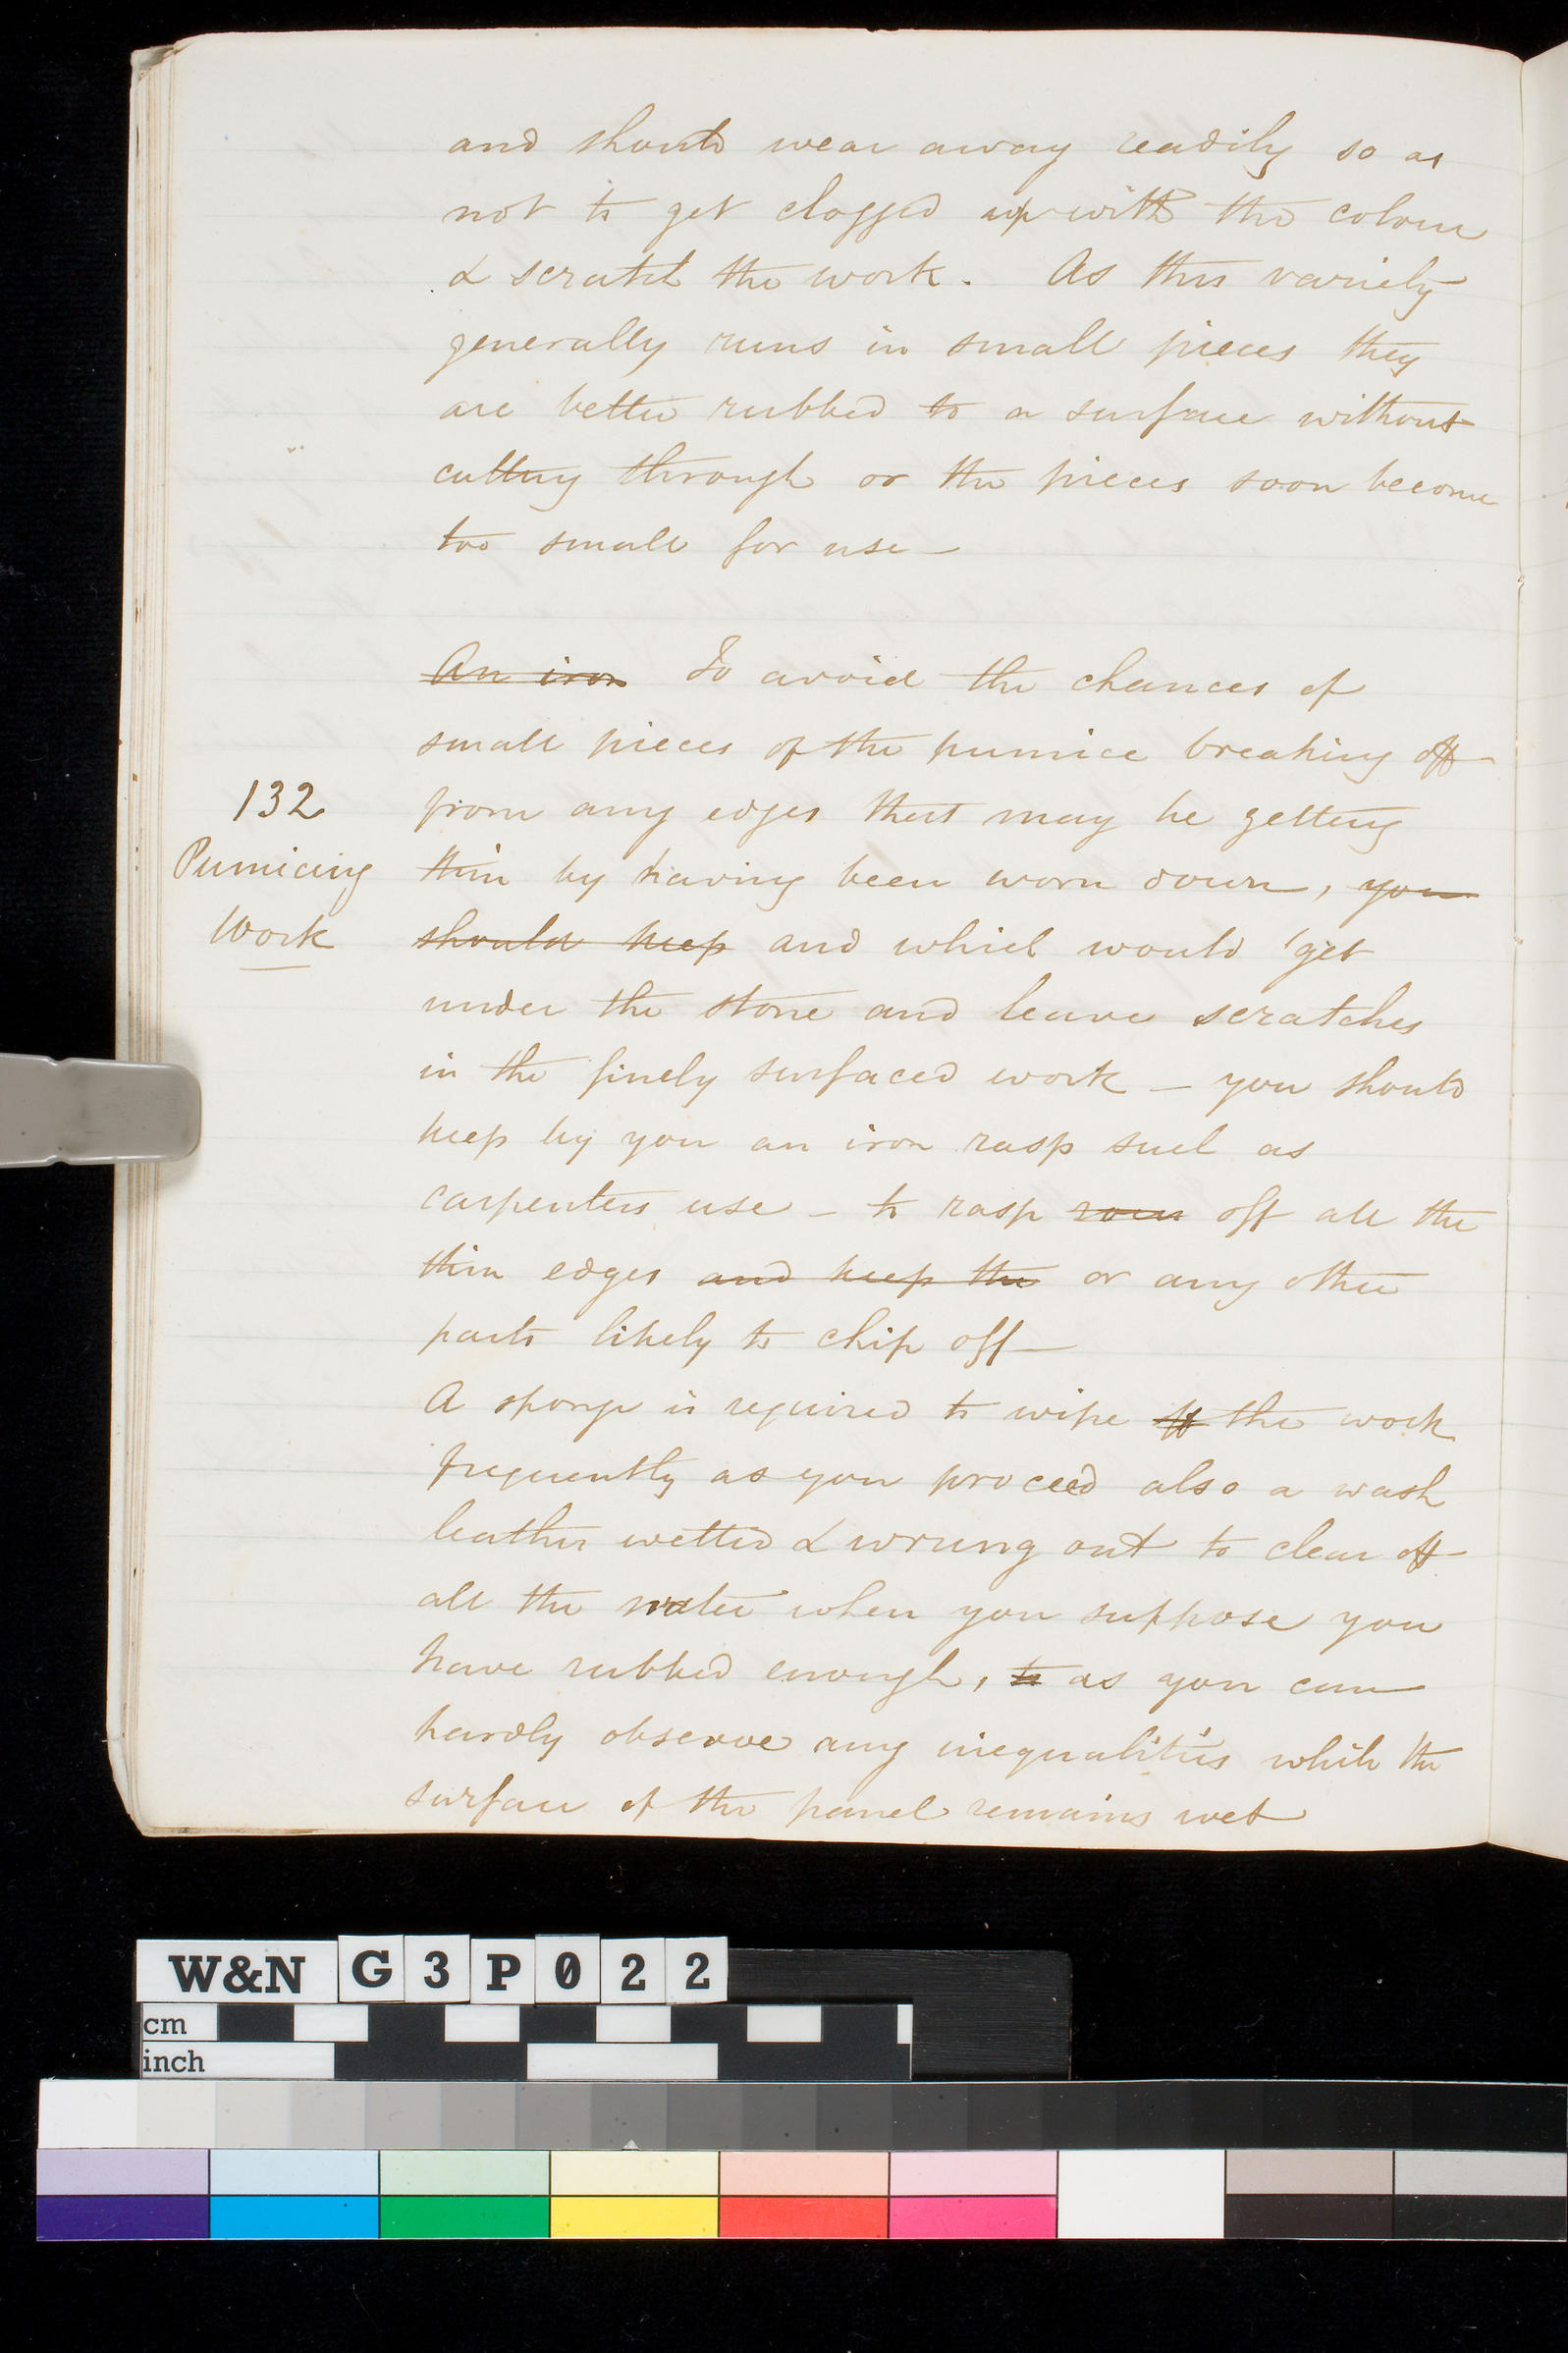 and should wear away readily so as
not to get clogged up with the colour
& scratch the work. As this variety
generally runs in small pieces they
are better rubbed to a surface without
cutting through or the pieces soon become
too small for use —
An iron To avoid the chances of
small pieces of the pumice breaking off
132
from any edges that may be getting
Pumicing
thin by having been worn down, you
Work
should keep and which would get
under the stone and leave scratches
in the finely surfaced work — you should
keep by you an iron rasp such as
carpenters use — to rasp off all the
thin edges and keep the or any other
parts likely to chip off —
A sponge is required to wipe the work
frequently as you proceed also a wash
leather wetted & wrung out to clear off
all the water when you suppose you
have rubbed enough, to as you can
hardly observe any inequalities while the
surface of the panel remains wet
W&N G3P022
cm
inch